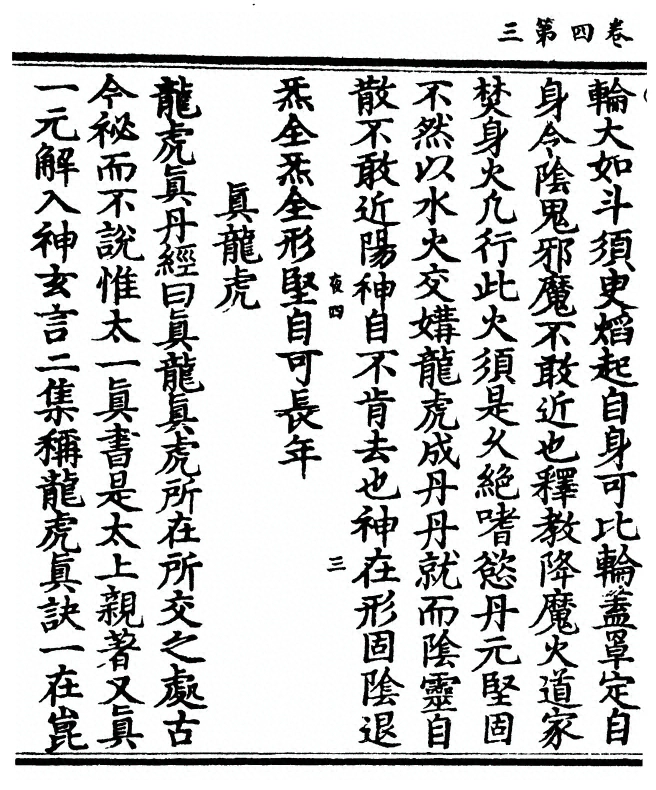 三第四卷
輪大如斗須㬰熖起自身可比輪蓋罩定自
身令陰鬼邪魔不敢近也釋教降魔火道家
焚身火凡行此火須是乆絶嗜慾丹元堅固
不然以水火交媾龍虎成丹丹就而陰靈自
散不敢近陽神自不肯去也神在形固陰退
夜四
三
炁全炁全形堅自可長年
眞龍虎
龍虎眞丹經曰眞龍眞虎所在所交之處古
今祕而不說惟太一眞書是太上親著又眞
一元解入神玄言二集稱龍虎眞訣一在崑